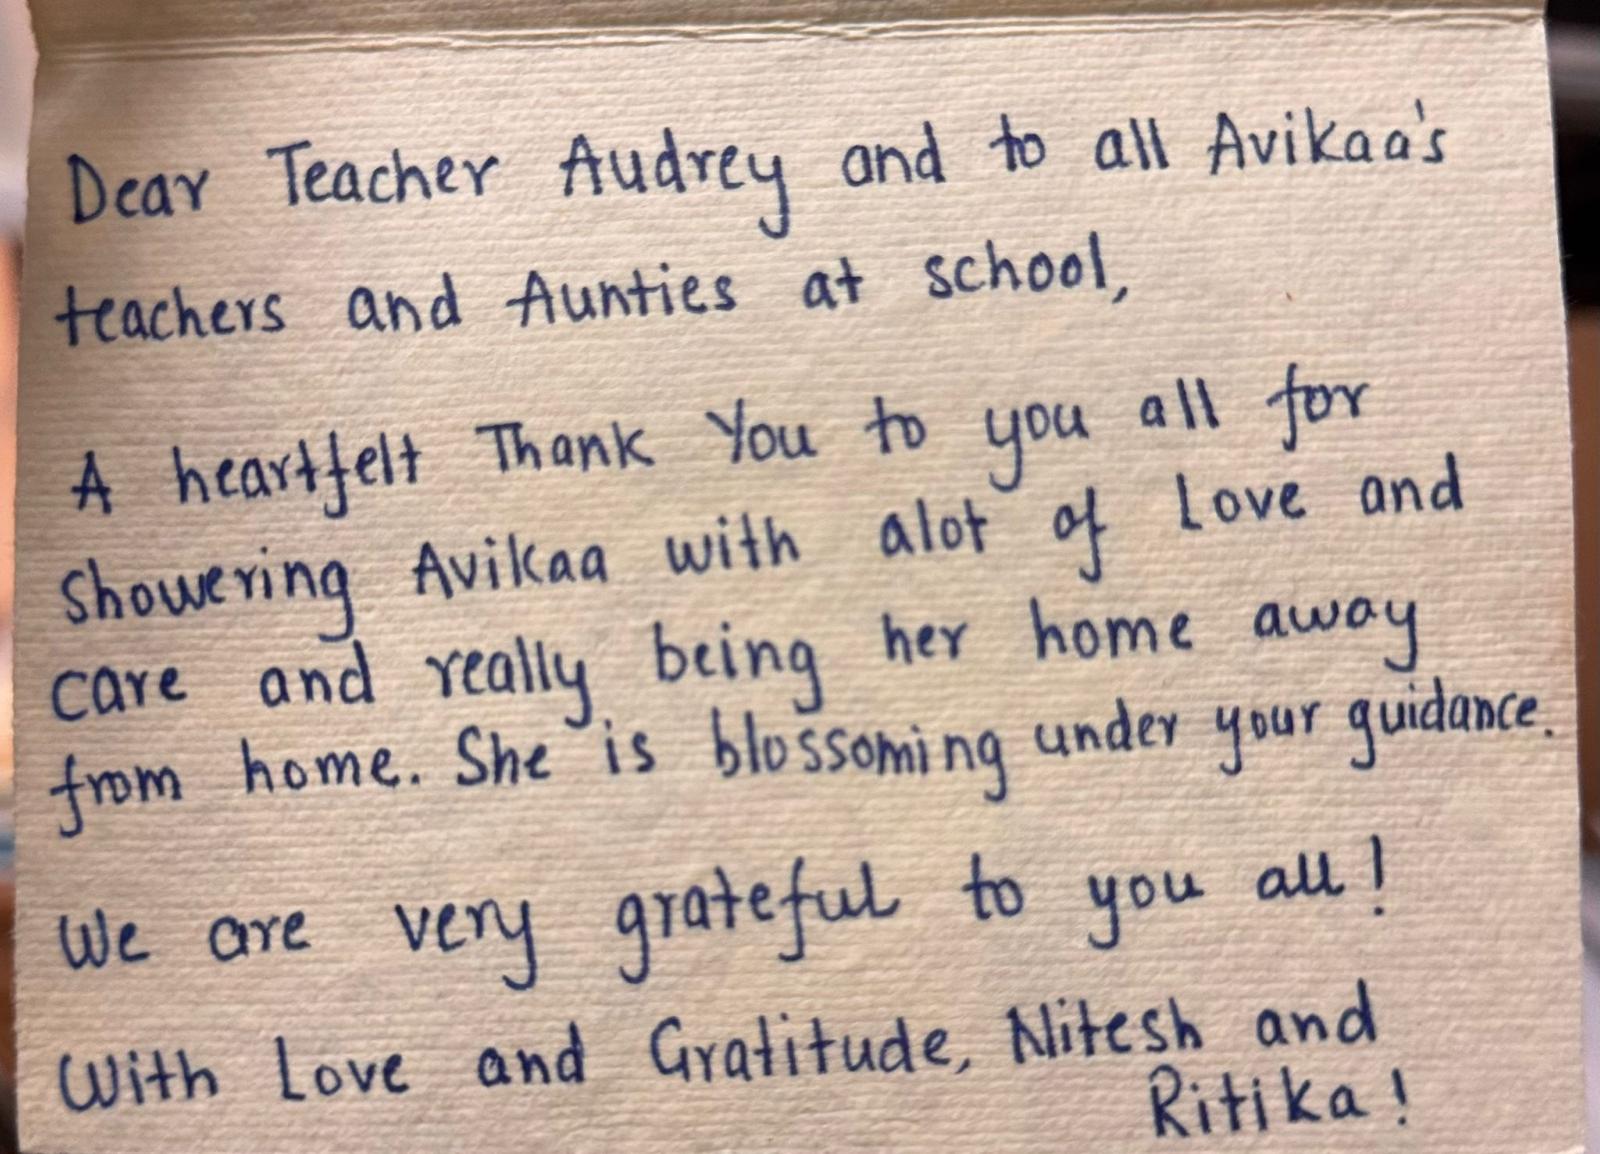 Dear Teacher Audrey and to all Avikaa's
teachers and Aunties at school,
A heartfelt Thank You to you all for
showering Avikaa with alot of Love and
care and really being her home away
from home. She is blossoming under your guidance.
We are very grateful to you all!
With Love and Gratitude, Nitesh and
Ritika!